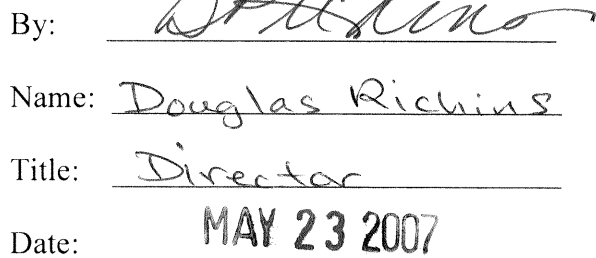 By:
Name: Douglas Richins
Title: Director
Date: MAY 23 2007